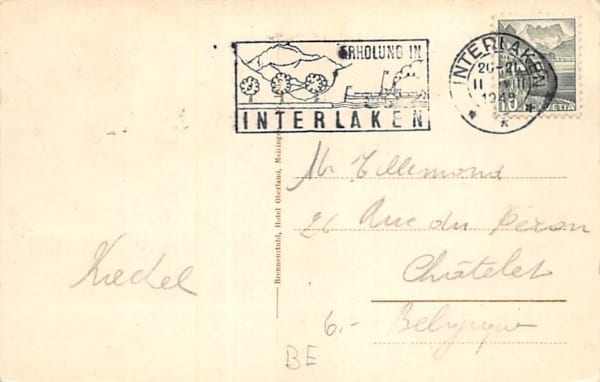 ERHOLUNG IN
INTERLAKEN
INTERLAKEN
20-21
1948
10 HELVETIA
Brennenstuhl, Hotel Oberland, Meiringen
Mr Tillemond
26 Rue du Peron
Châtelet
Belgique
6.-
BE